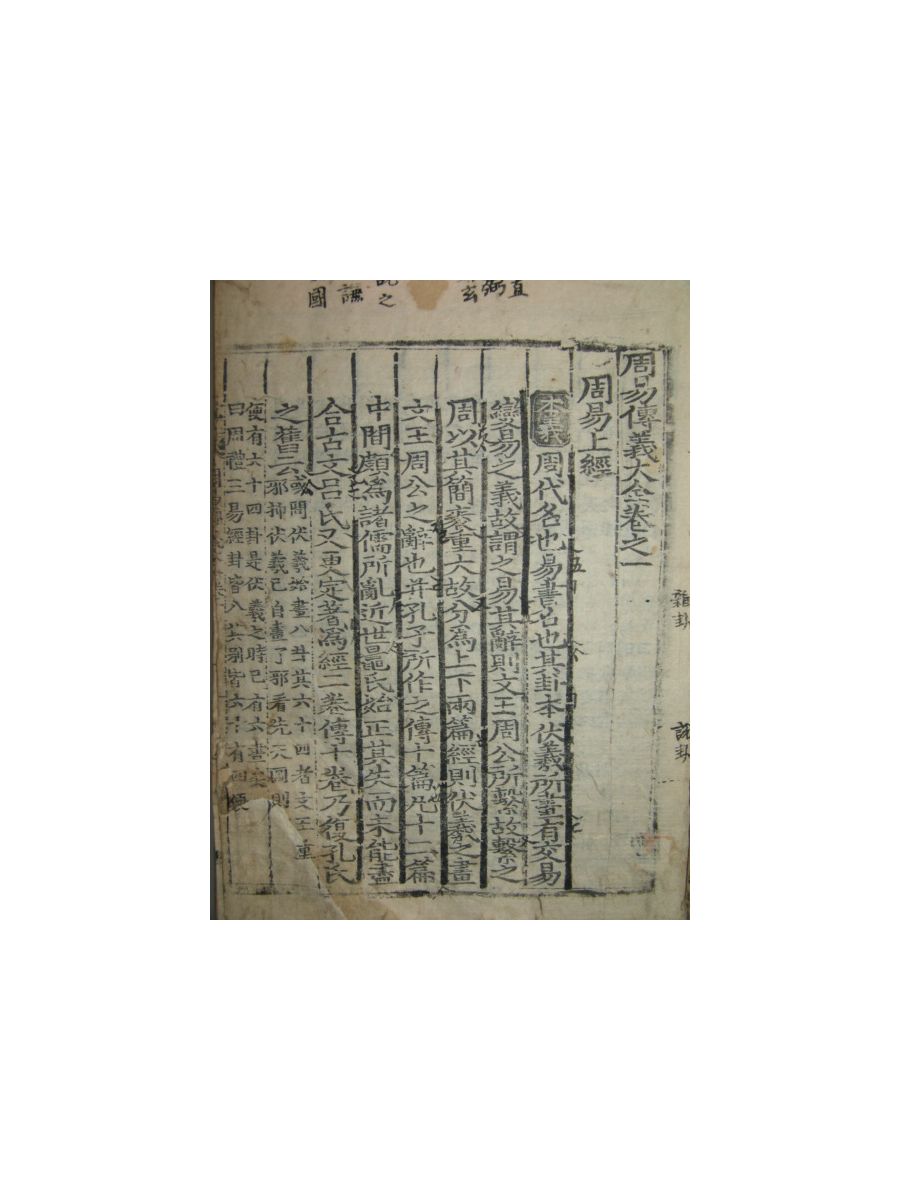 周易傳義大全卷之一
周易上經
本義 周代名也易書名也其卦本伏羲所畫有交易
變易之義故謂之易其辭則文王周公所繫故繫之
周以其簡袠重大故分為上下兩篇經則伏羲之畫
文王周公之辭也并孔子所作之傳十篇凡十二篇
中間頗為諸儒所亂近世晁氏始正其失而未能盡
合古文呂氏又更定著為經二卷傳十卷乃復孔氏
之舊云
或問伏羲始畫八卦其六十四者文王重
邪抑伏羲已自畫了邪看先天圖則
便有六十四卦是伏羲之時已有六畫
曰周禮三易經卦皆八其別皆六十有四便
雜卦
說卦
直
弼
玄
之
譙
國